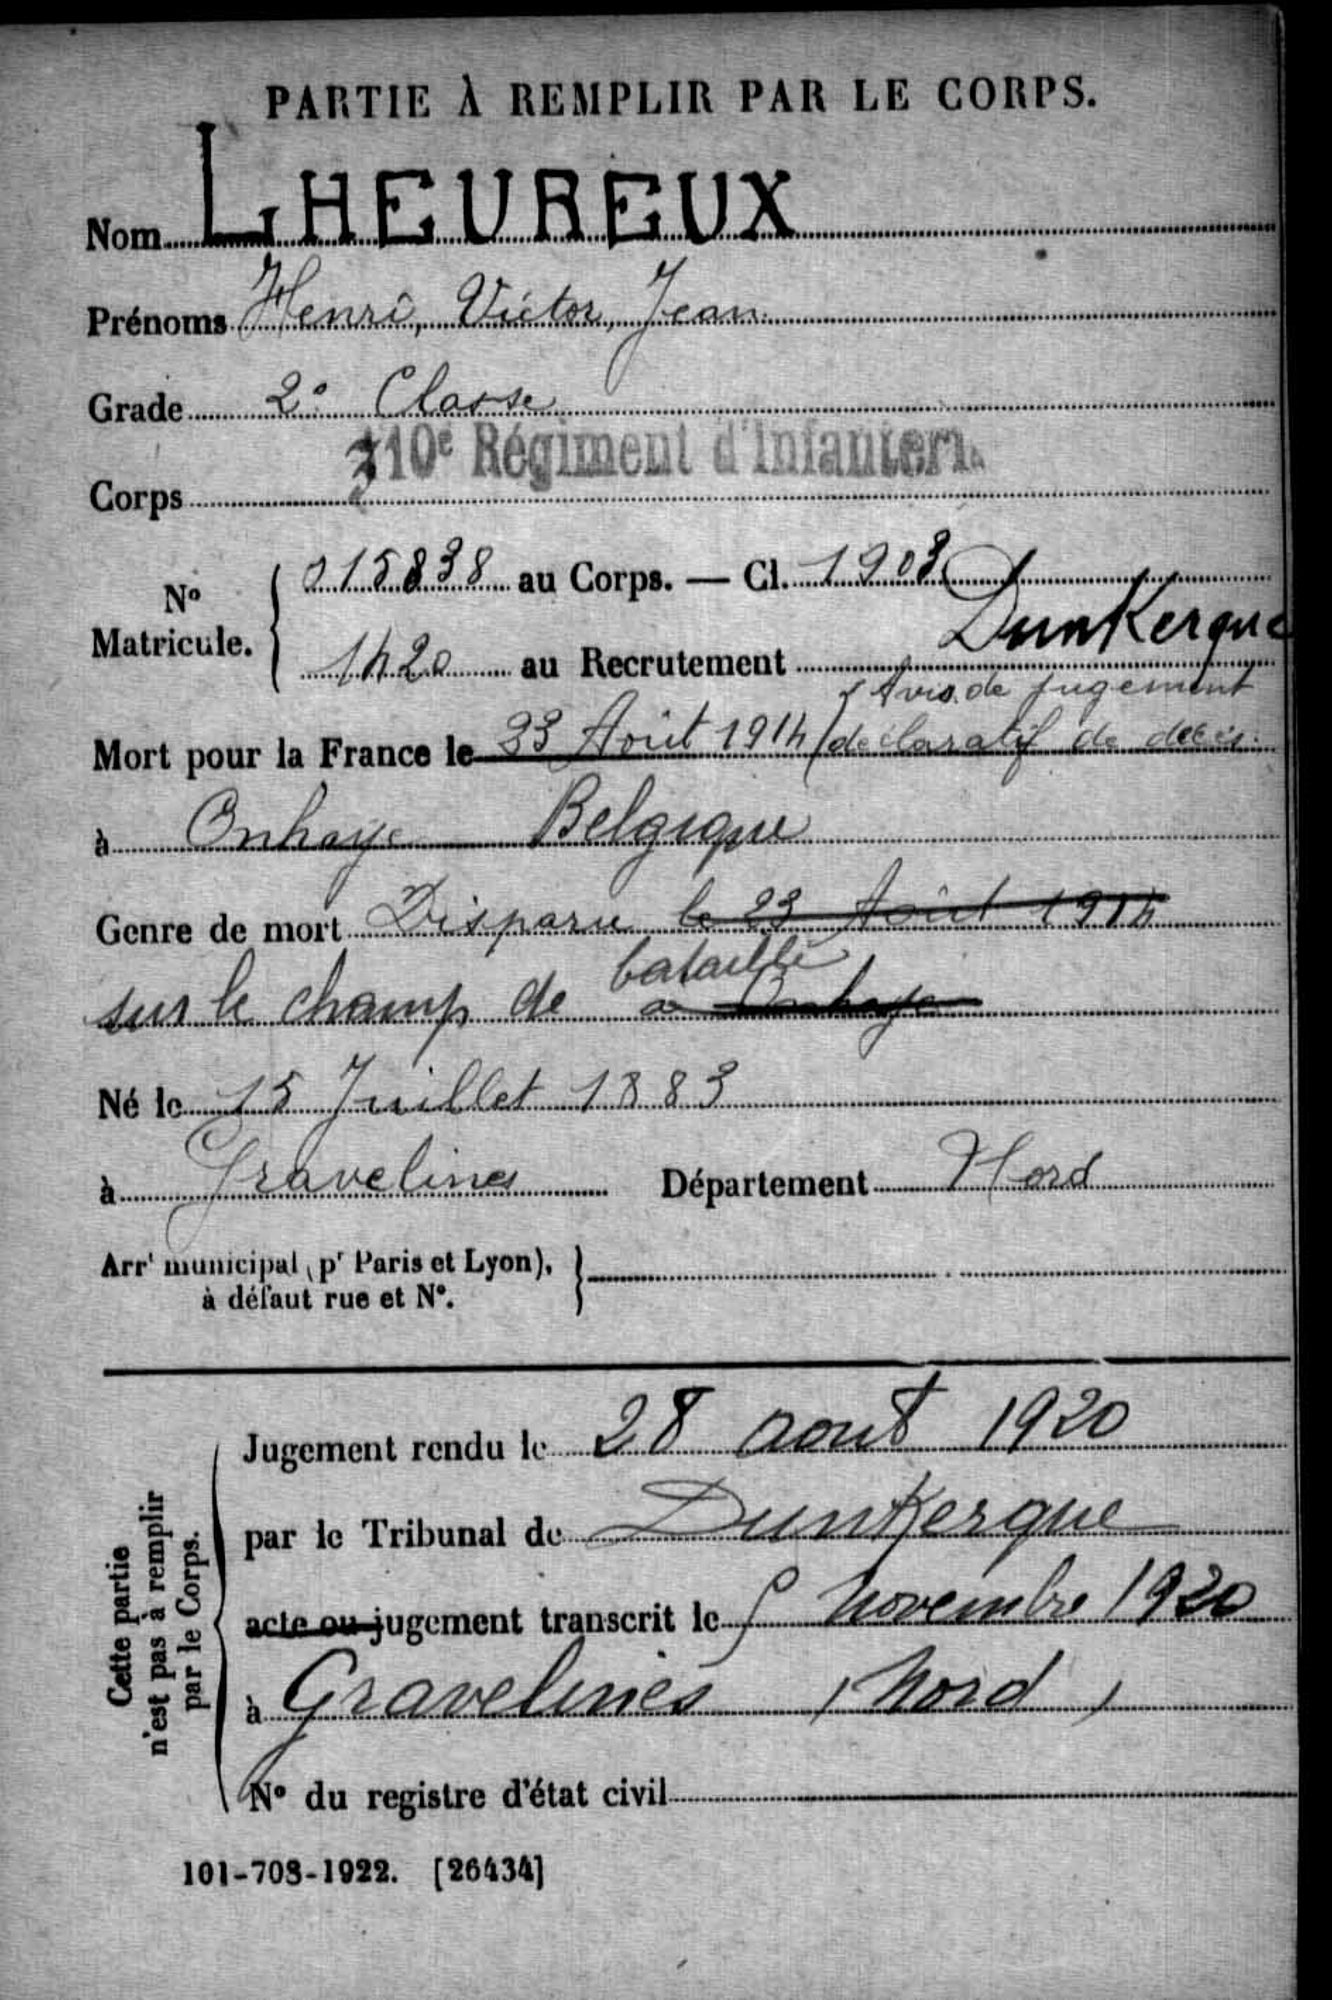 PARTIE À REMPLIR PAR LE CORPS.
Nom LHEUREUX
Prénoms Henri, Victor, Jean
Grade 2e Classe
310e Régiment d'Infanterie
Corps
No Matricule. { 015838 au Corps. — Cl. 1903 Dunkerque
1420 au Recrutement
(Avis de jugement
Mort pour la France le 23 Août 1914 déclaratif de décès.
à Onhaye Belgique
Genre de mort Disparu le 23 Août 1914
sur le champ de bataille a Onhaye
Né le 15 Juillet 1883
à Gravelines Département Nord
Arrt municipal (pr Paris et Lyon), }
à défaut rue et No.
Cette partie
n'est pas à remplir
par le Corps.
Jugement rendu le 28 aout 1920
par le Tribunal de Dunkerque
acte ou jugement transcrit le novembre 1920
à Gravelines (Nord)
No du registre d'état civil
101-708-1922. [26434]